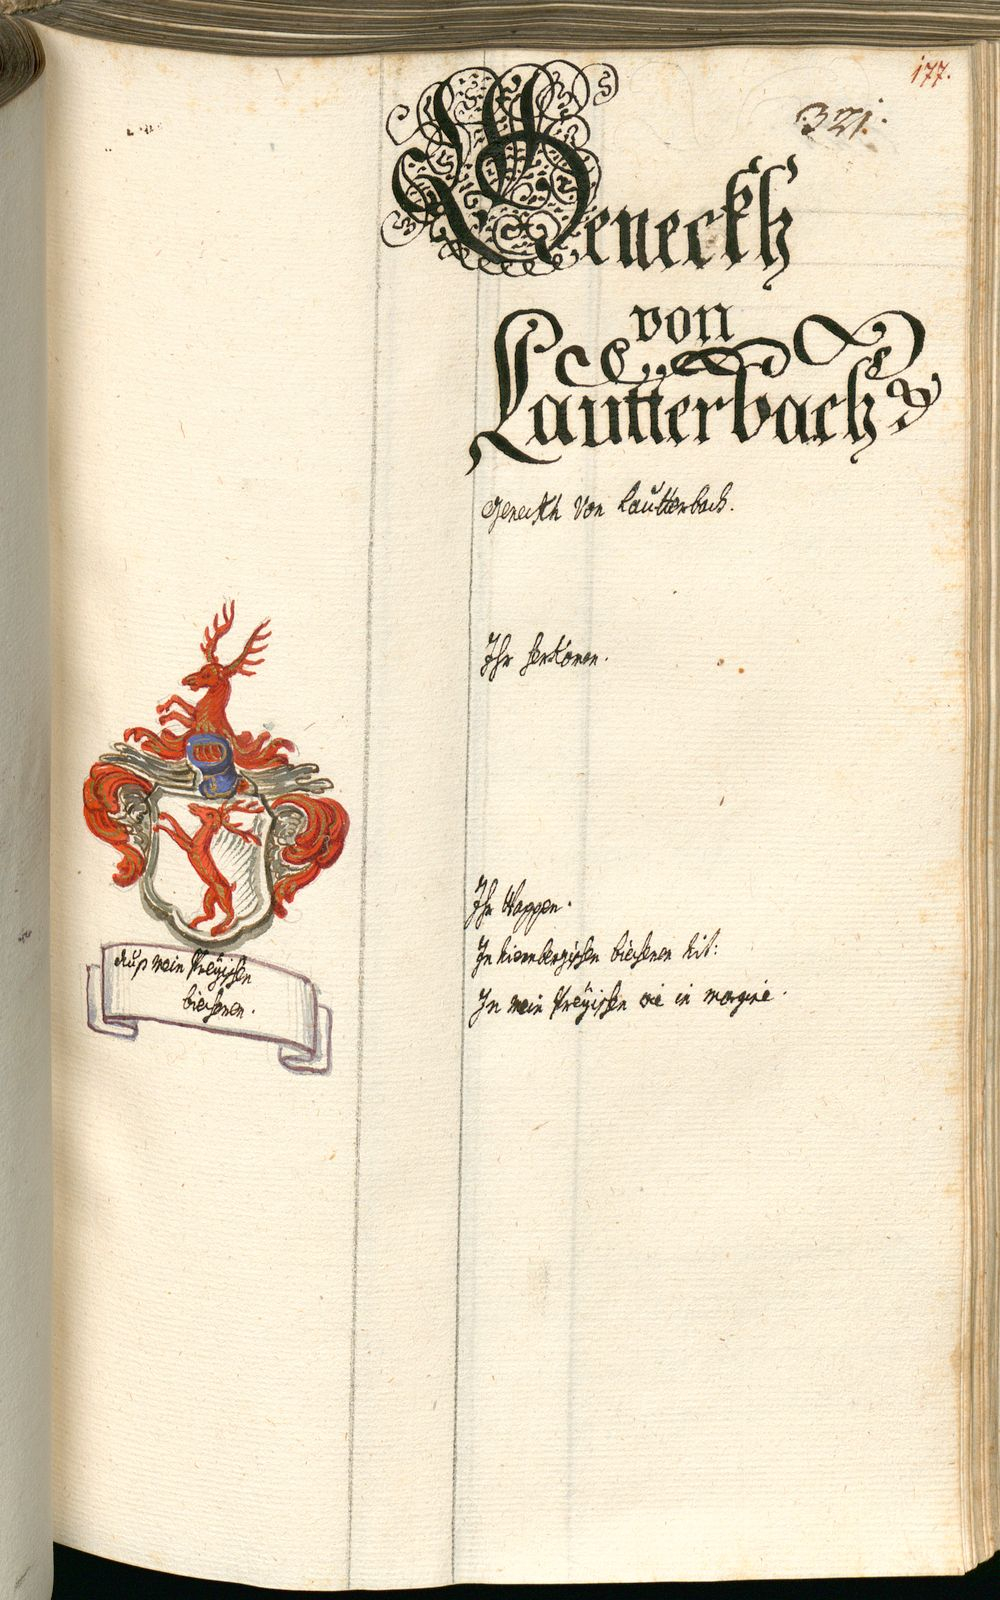 177.
321.
Geneckh
von
Lautterbach
Geneckh von Lautterbach.
Ihr herkomen.
Ihr Wappen.
In biechern
In mein Preÿischen wie in margine.
Auß mein Preÿischen
biechern.